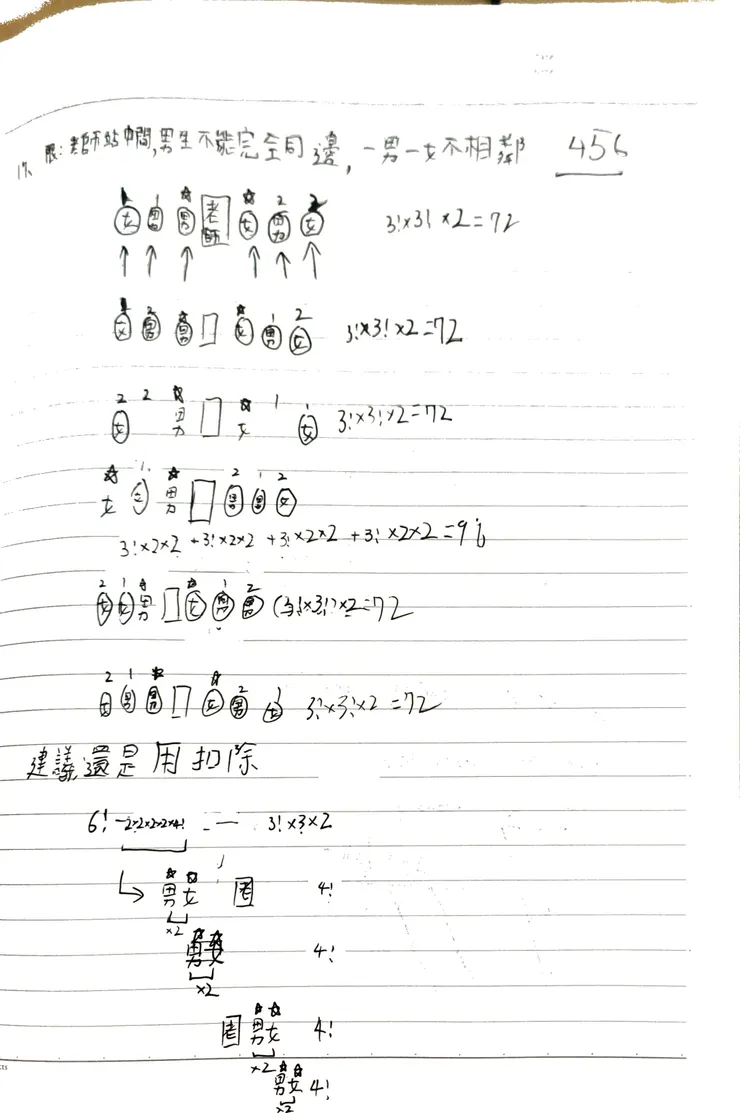 17. 限:老師站中間,男生不能完全同邊,一男一女不相鄰 456
1 1 ☆ ☆ 2 2
女 男 男 老師 女 男 女 3!×3!×2=72
↑ ↑ ↑ ↑ ↑ ↑
1 2 ☆ ☆ 1 2
女 男 男 女 男 女 3!×3!×2=72
2 2 ☆ ☆ 1 1
女 男 女 女 3!×3!×2=72
☆ 1 ☆ 2 1 2
女 女 男 男 男 女
3!×2×2 +3!×2×2 +3!×2×2 +3!×2×2=96
2 1 ☆ ☆ 1 2
女 女 男 女 男 男 (3!×3!)×2=72
2 1 ☆ ☆ 2 1
女 男 男 女 男 女 3!×3!×2=72
建議還是用扣除
6! -2×2×2×2×4! - 3!×3×2
☆ ☆
男女 4!
×2
☆ ☆
男女 4!
×2
☆ ☆
男女 4!
×2
☆ ☆
男女 4!
×2